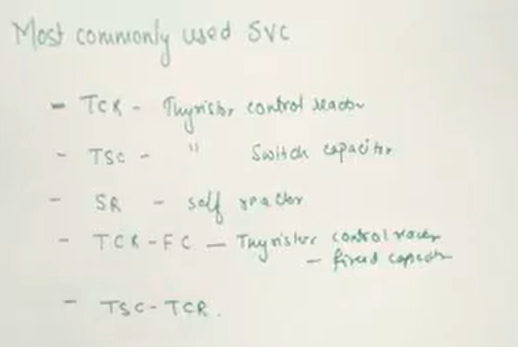 Most commonly used SVC
- TCR - Thyristor control reactor
- TSC - " Switch capacitor
- SR - self reactor
- TCR-FC - Thyristor control reactor
- fixed capacitor
- TSC-TCR.